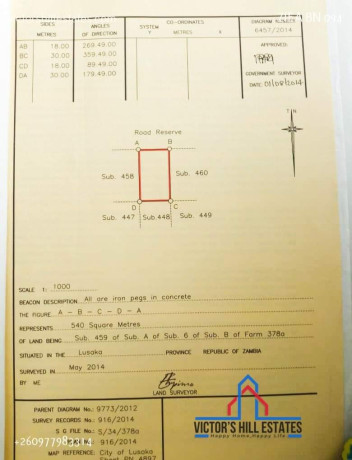 SIDES
METRES
ANGLES
OF DIRECTION
SYSTEM
CO-ORDINATES
Y METRES X
DIAGRAM NUMBER
6457/2014
AB 18.00 269.49.00
BC 30.00 359.49.00
CD 18.00 89.49.00
DA 30.00 179.49.00
APPROVED:
GOVERNMENT SURVEYOR
DATE:
T N
Road Reserve
A B
Sub. 458 Sub. 460
D C
Sub. 447 Sub.448 Sub. 449
SCALE 1: 1000
BEACON DESCRIPTION: All are iron pegs in concrete
THE FIGURE A - B - C - D - A
REPRESENTS 540 Square Metres
OF LAND BEING Sub. 459 of Sub. A of Sub. 6 of Sub. B of Farm 378a
SITUATED IN THE Lusaka PROVINCE REPUBLIC OF ZAMBIA
SURVEYED IN May 2014
BY ME
LAND SURVEYOR
PARENT DIAGRAM No: 9773/2012
SURVEY RECORDS No: 916/2014
S G FILE No.: 5/34/378a
916/2014
MAP REFERENCE: City of Lusaka
VICTOR'S HILL ESTATES
Happy Home, Happy Life